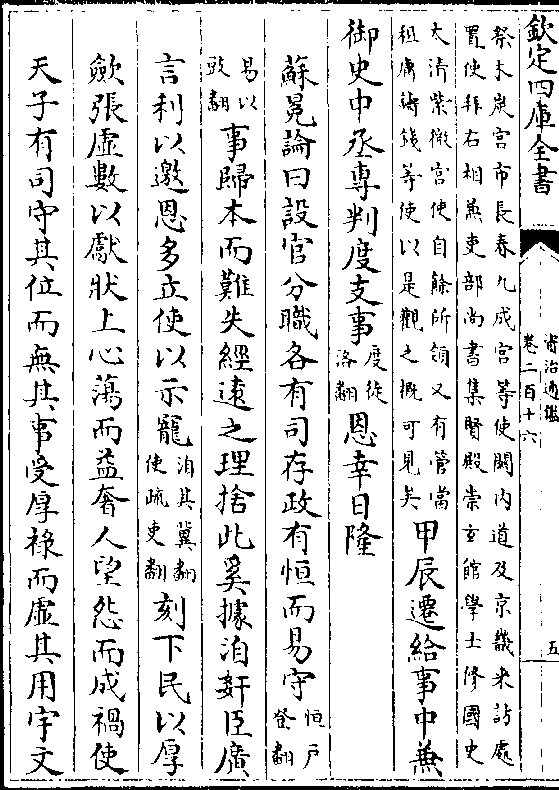 欽定四庫全書
資治通鑑
卷二百十六
五
祭木炭宫市長春九成宫等使關内道及京畿采訪處
置使拜右相兼吏部尚書集賢殿崇玄館學士修國史
太清紫微宫使自餘所領又有管當
租庸鑄錢等使以是觀之概可見矣
甲辰遷給事中兼
御史中丞專判度支事
度徒
洛翻
恩幸日隆
蘇冕論曰設官分職各有司存政有恒而易守
恒户
登翻
易以
豉翻
事歸本而難失經遠之理捨此奚據洎姧臣廣
言利以邀恩多立使以示寵
洎其冀翻
使疏吏翻
刻下民以厚
歛張虚數以獻狀上心蕩而益奢人望怨而成禍使
天子有司守其位而無其事受厚禄而虚其用宇文